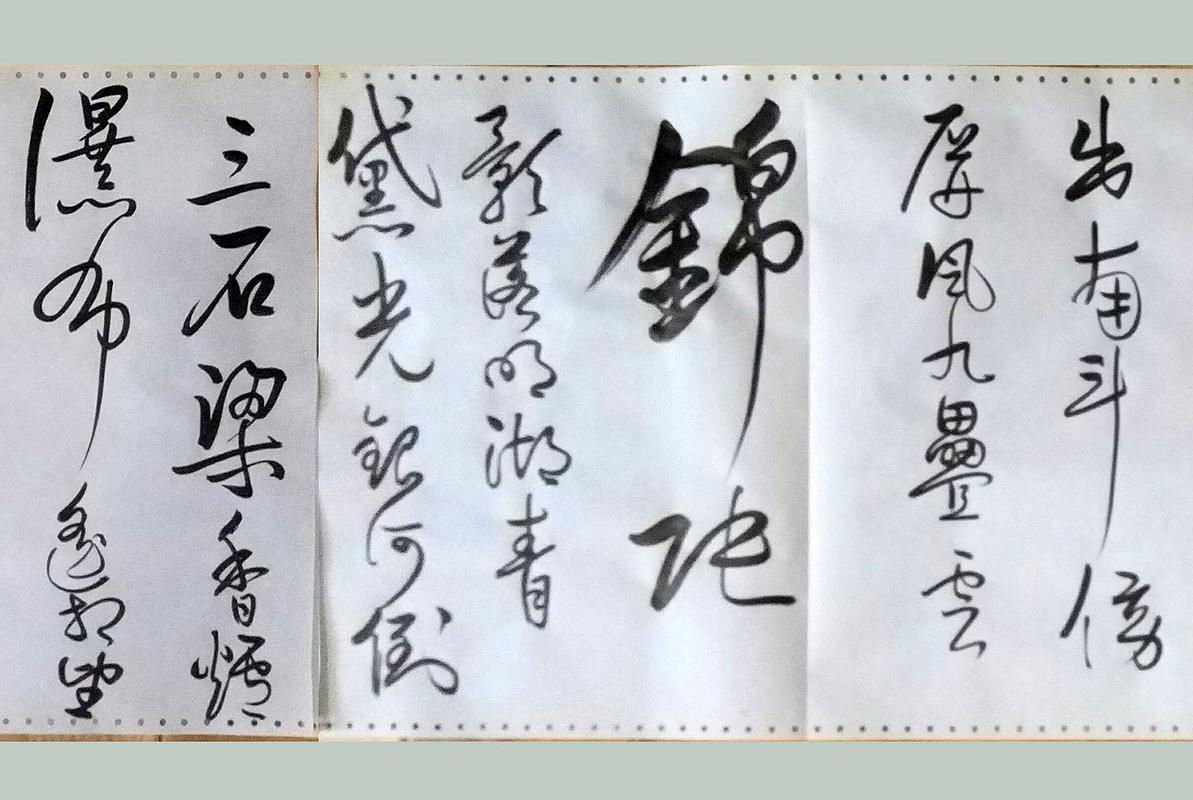 出南斗傍
屏風九疊雲
錦張
影落明湖青
黛光銀河倒
三石梁香爐
瀑布遙相望